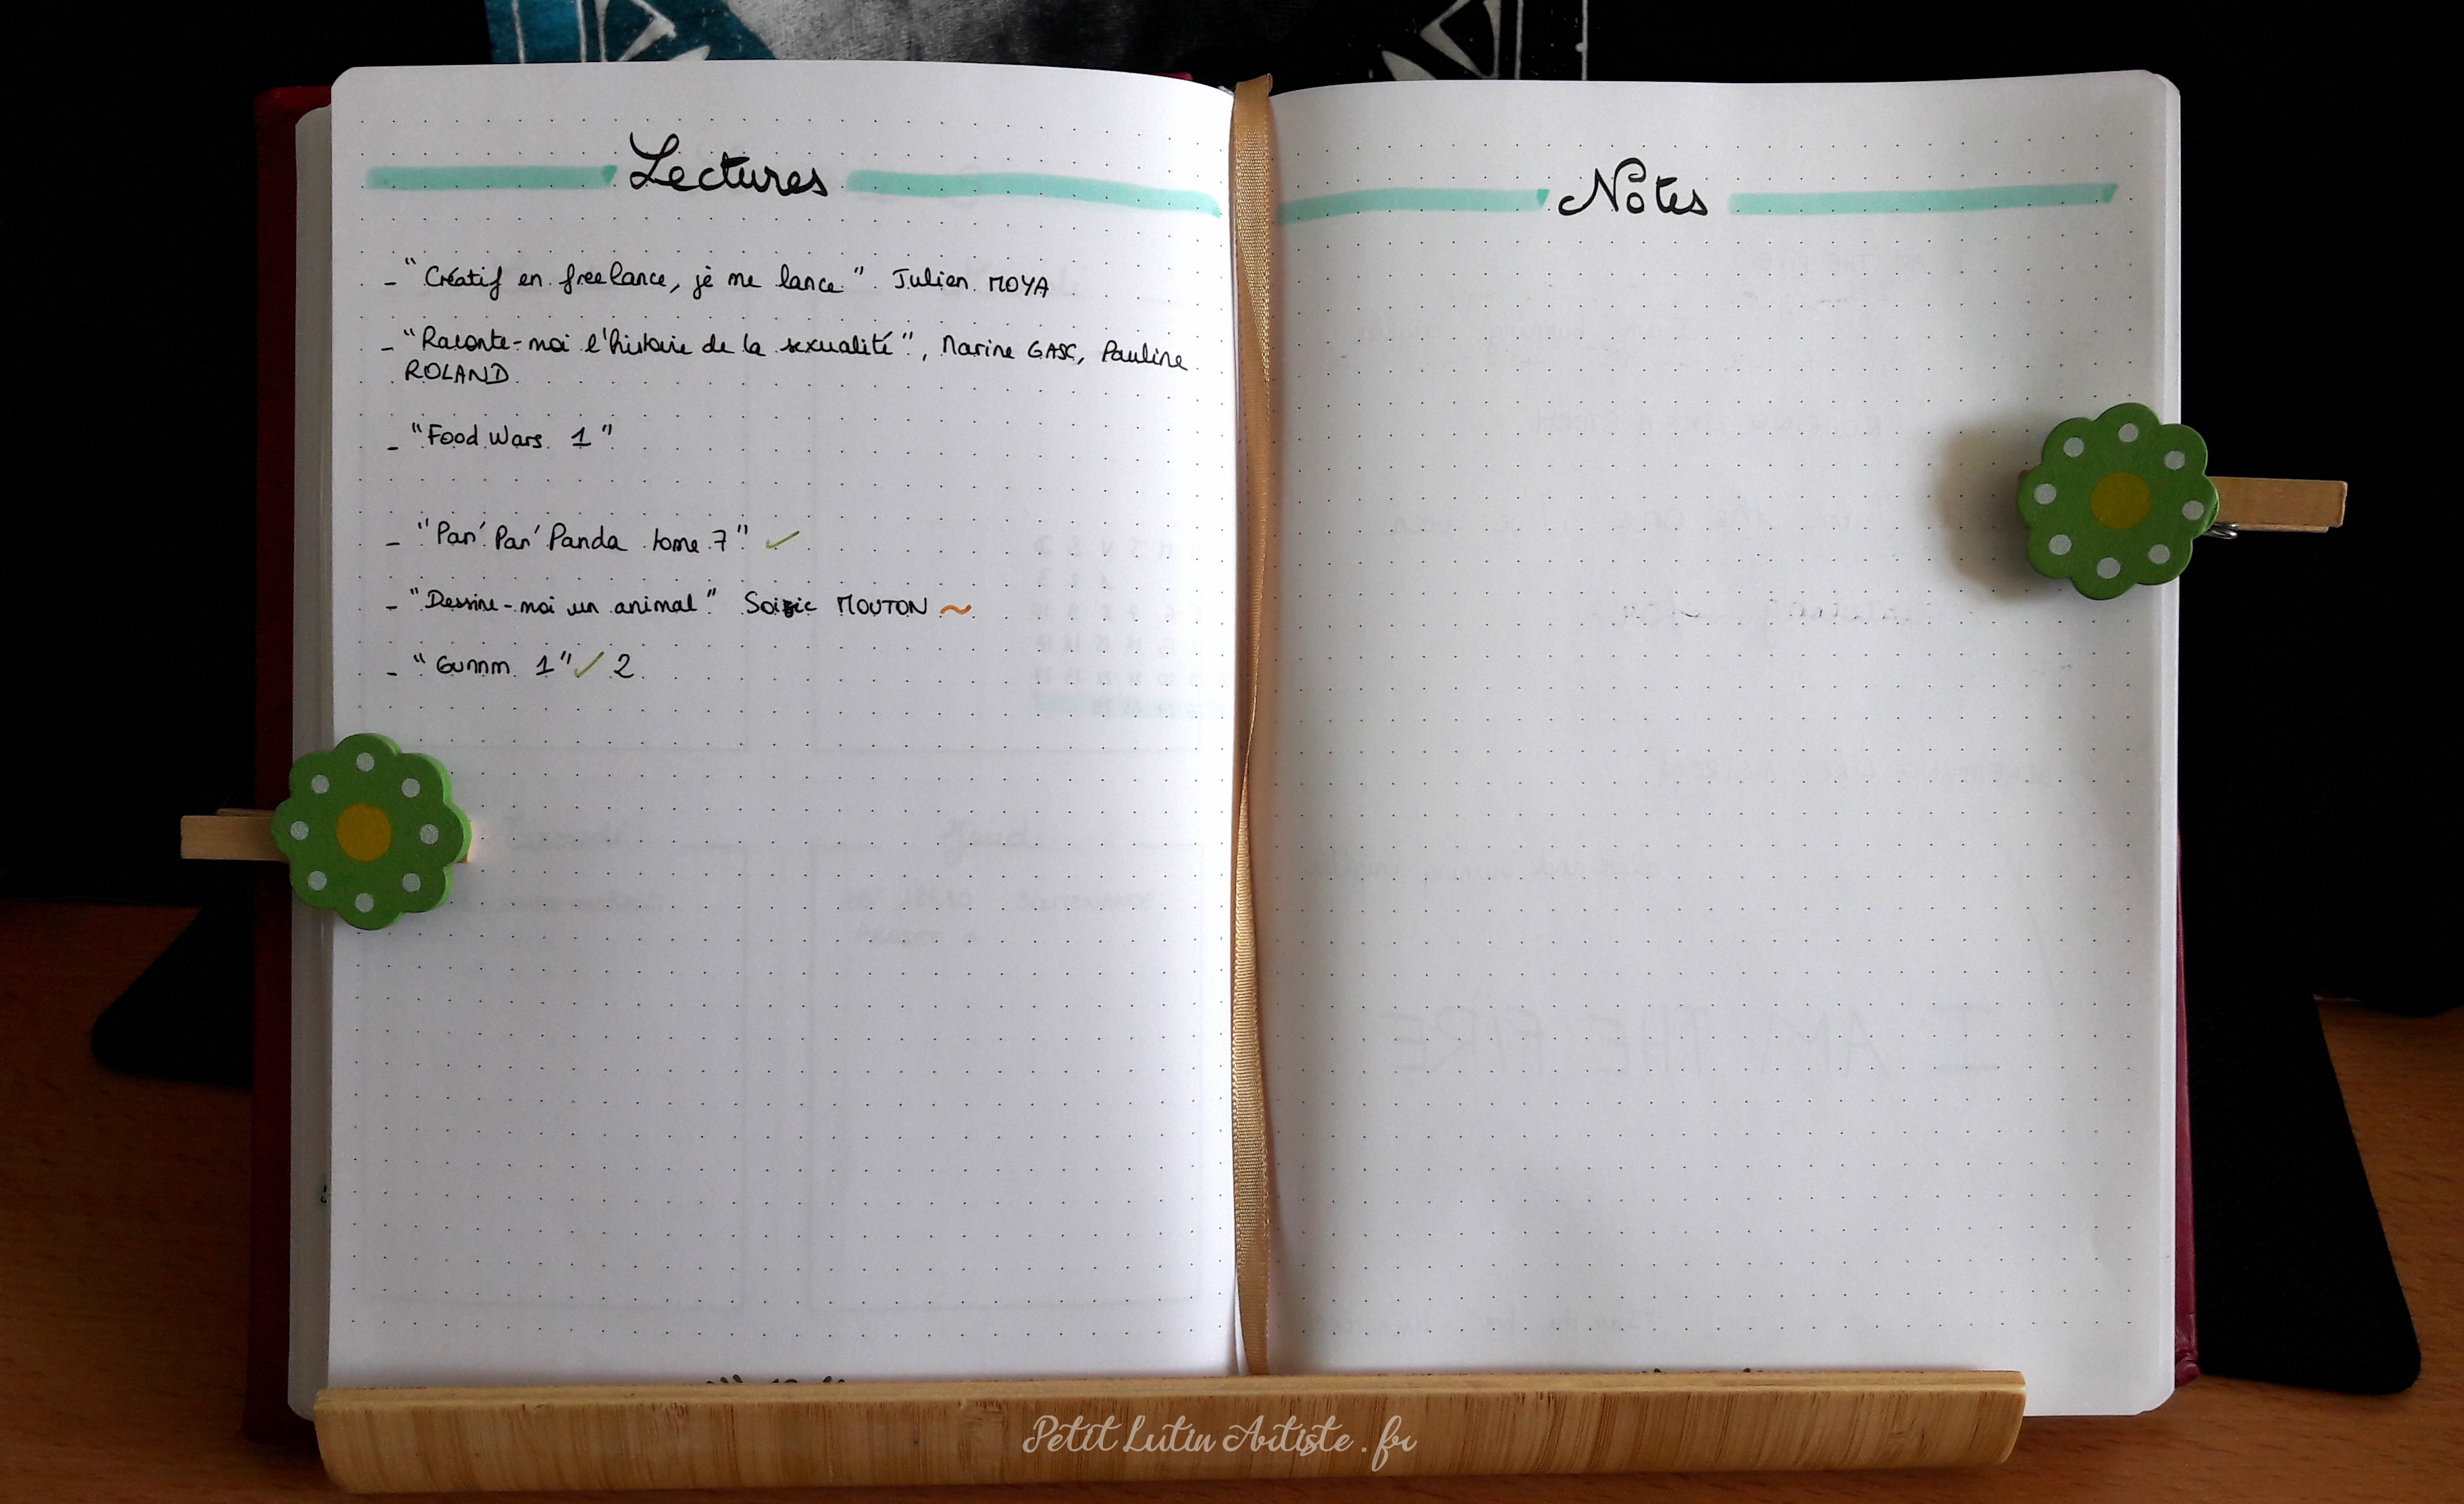 Lectures
- "Créatif en freelance, je me lance" Julien MOYA
- "Raconte-moi l'histoire de la sexualité", Marine GASC, Pauline
ROLAND
- "Food Wars 1"
- "Pan' Pan' Panda tome 7" ✓
- "Dessine-moi un animal" Soizic MOUTON ~
- "Gunnm 1" ✓ 2
Notes
Petit Lutin Artiste.fr